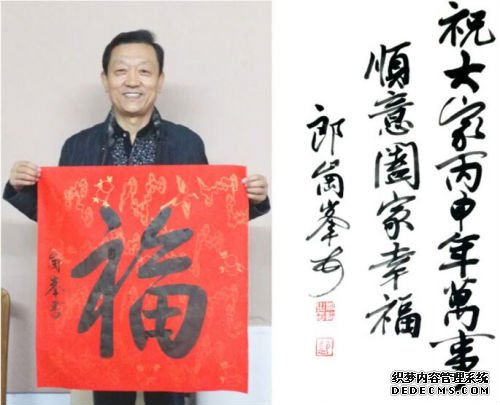 福
峯書
祝大家丙申年萬事
順意闔家幸福
郎 峯
织梦内容管理系统
DEDECMS.COM